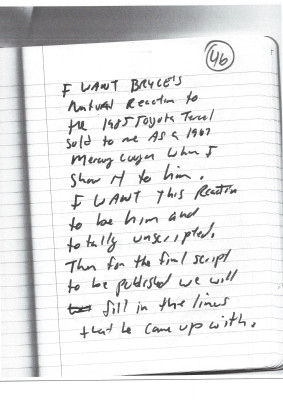 46
I WANT BRYCE'S
Natural Reaction to
the 1985 Toyota Tercel
sold to me As a 1967
Mercury Cougar when I
show it to him.
I WANT this Reaction
to be him and
totally unscripted.
Then for the final script
to be published we will
fill in the lines
that he came up with.